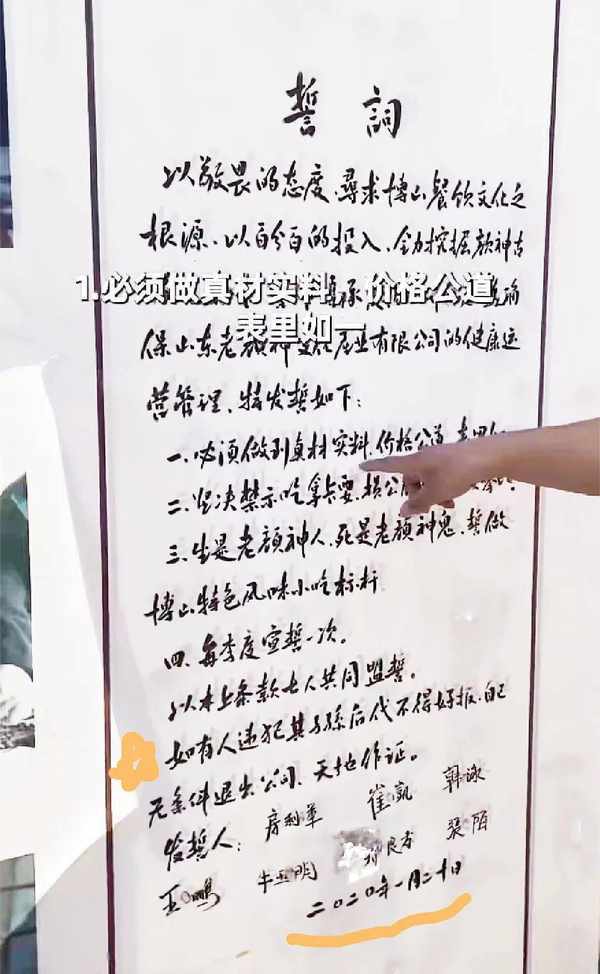 誓詞
以敬畏的态度、尋求博山餐饮文化之
根源、以百分百的投入、全力挖掘颜神古
1.必须做真材实料 价格公道
表里如一
保山东老颜神 业有限公司的健康运
营管理、特发誓如下：
一、必須做到真材实料、价格公道、表里
二、坚决禁示吃拿卡要、损公
三、生是老顔神人、死是老顔神鬼、誓做
博山特色风味小吃标杆
四、每季度宣誓一次。
以上条款七人共同盟誓。
如有人违犯其子孫后代不得好报、自己
无条件退出公司、天地作证。
发誓人：房利華 崔凱 韓
王鹏 牛 明 良 張
二〇二〇年一月二十日